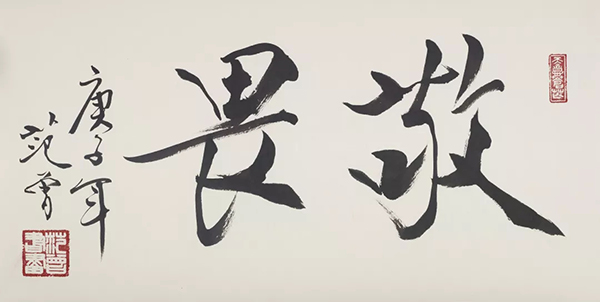 敬畏
庚子年
范曾